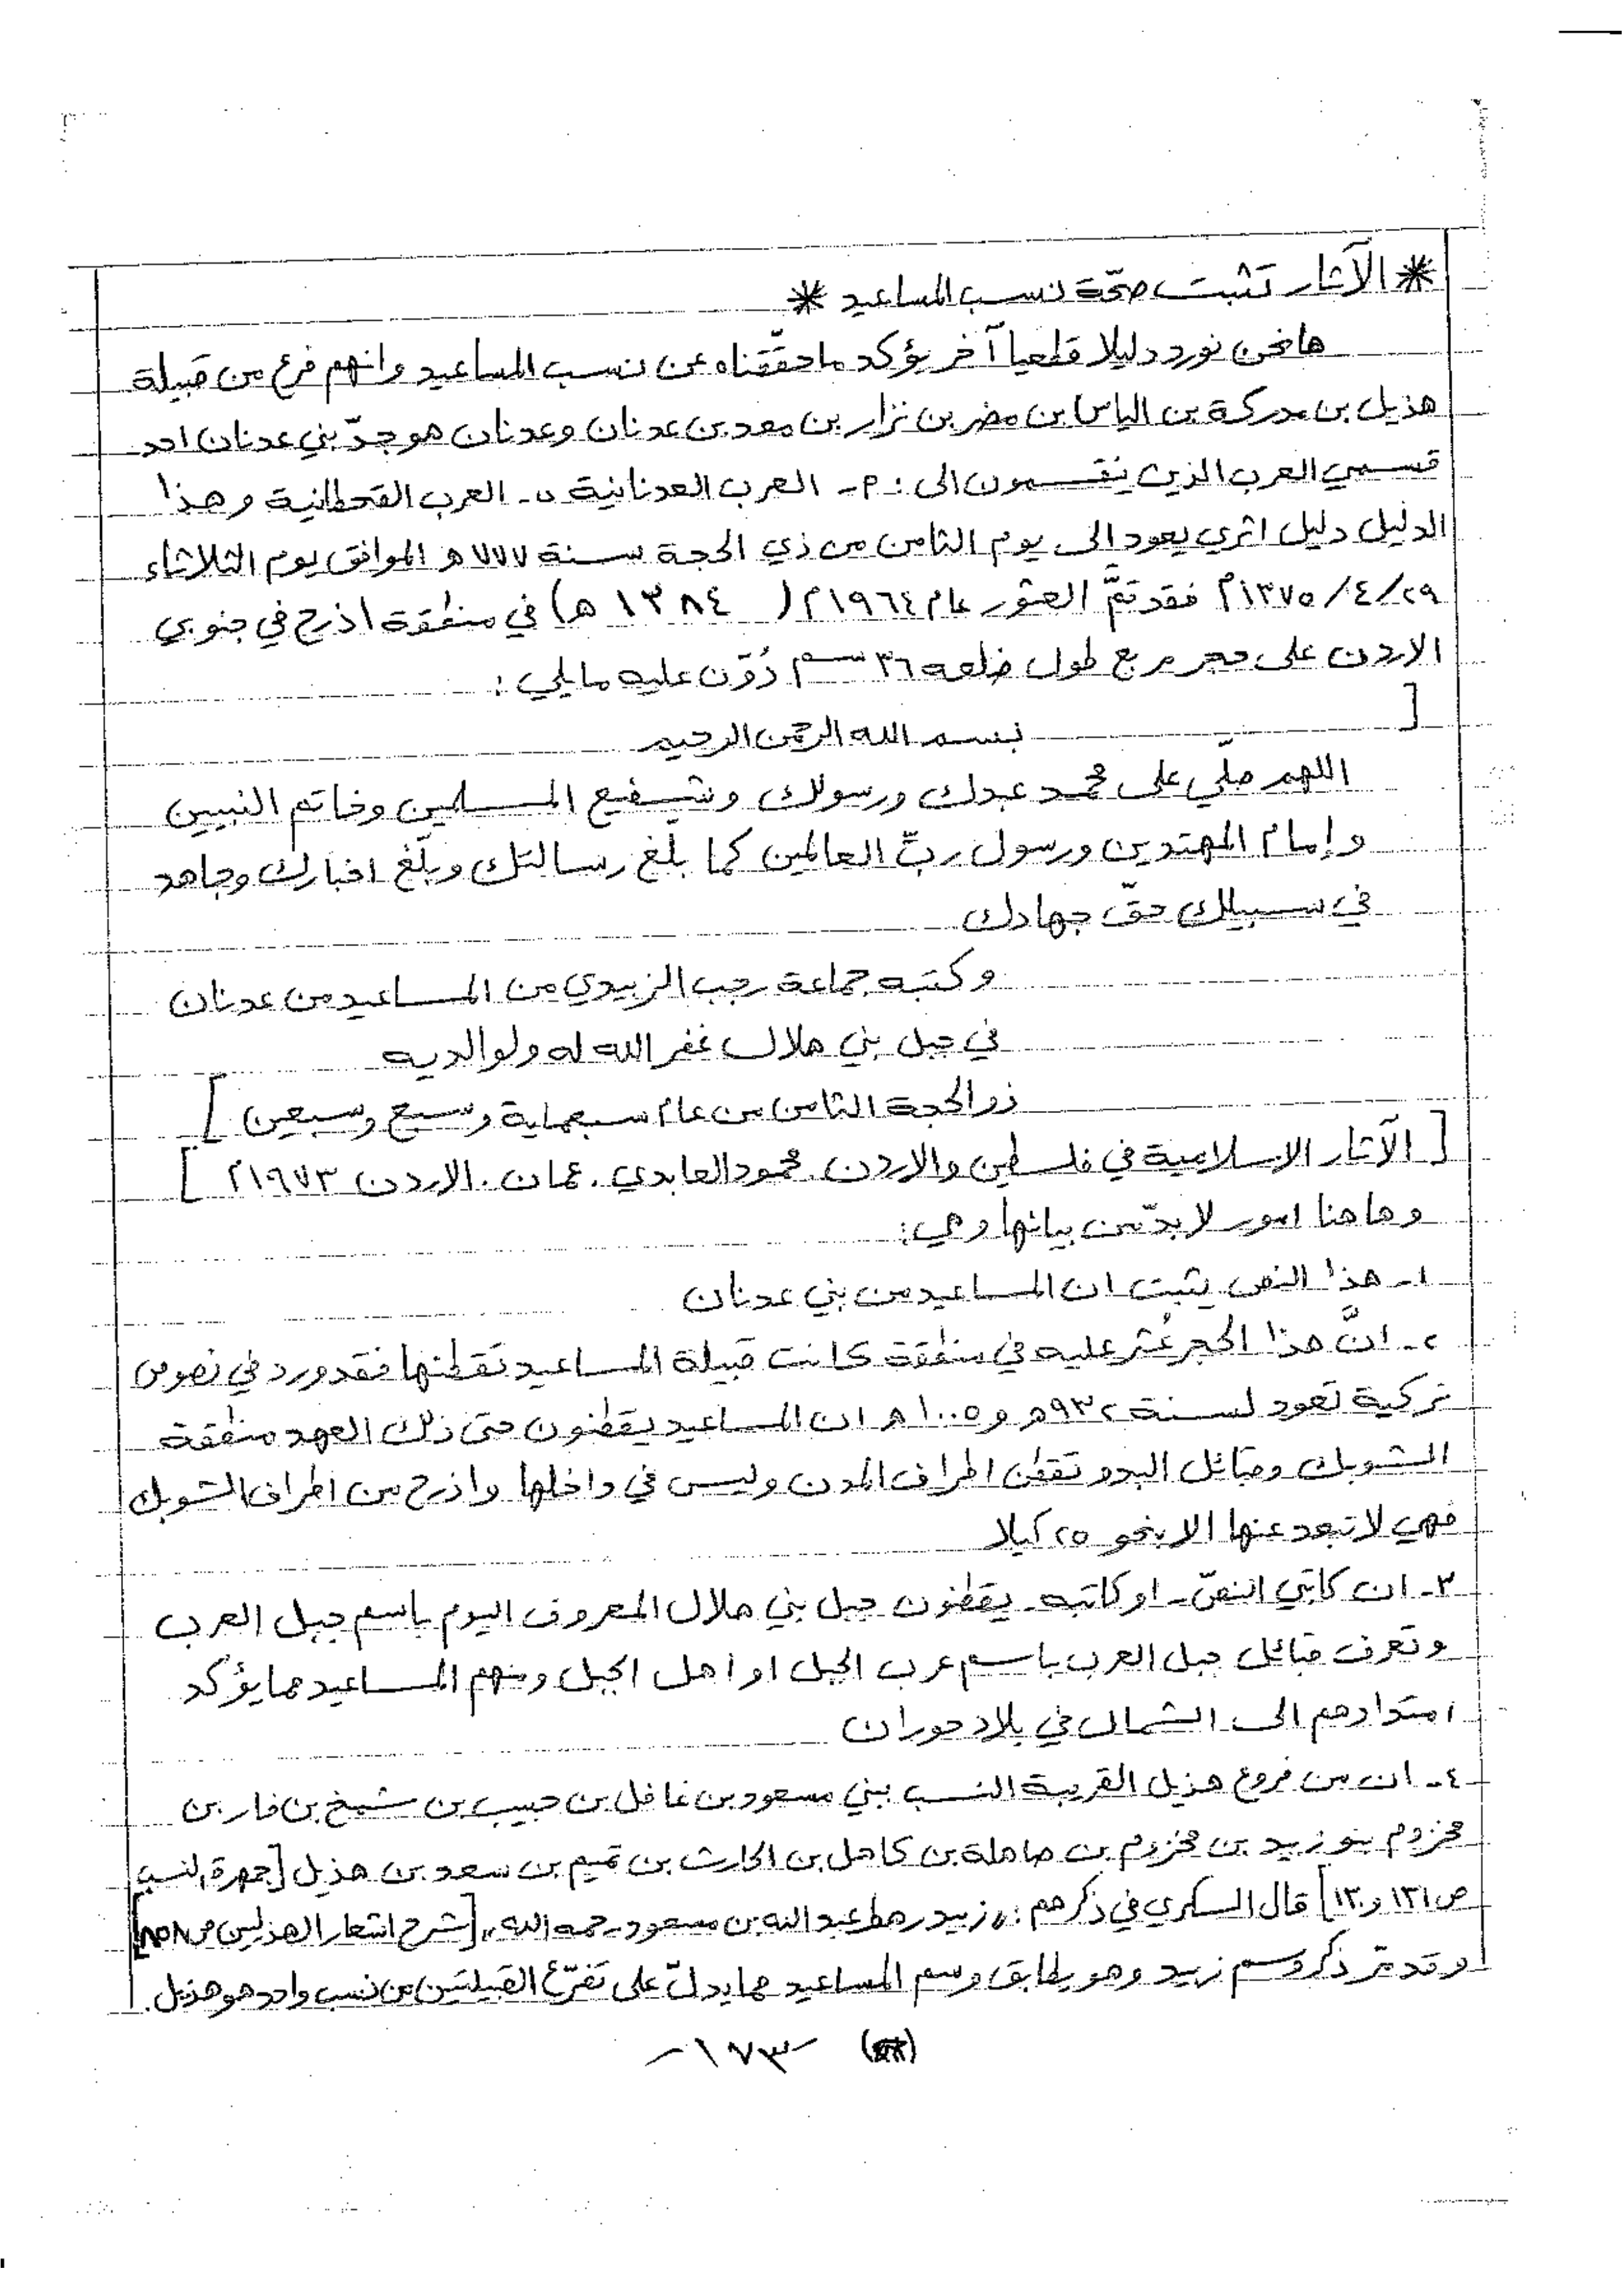 * الآثار تثبت صحّة نسب المساعيد *
ها نحن نورد دليلا قطعيا آخر يؤكد ما حقّقناه عن نسب المساعيد وانهم فرع من قبيلة
هذيل بن مدركة بن الياس بن مضر بن نزار بن معد بن عدنان وعدنان هو جدّ بني عدنان احد
قسمي العرب الذين ينقسمون الى : م- العرب العدنانية ن- العرب القحطانية وهذا
الدليل دليل اثري يعود الى يوم الثامن من ذي الحجة سنة ٧٧٧ هـ الموافق يوم الثلاثاء
٢٩/٤/١٣٧٥م فقد تمَّ العثور عام ١٩٦٤م ( ١٣٨٤ هـ) في منطقة اذرح في جنوبي
الاردن على حجر مربع طول ضلعه ٣٦ سم دُوّن عليه ما يلي :
[
بسم الله الرحمن الرحيم
اللهم صلّي على محمد عبدك ورسولك وشفيع المسلمين وخاتم النبيين
وإمام المهتدين ورسول ربّ العالمين كما بلّغ رسالتك وبلّغ اخبارك وجاهد
في سبيلك حقّ جهادك
وكتبه جماعة رجب الزبيدي من المساعيد من عدنان
في جبل بني هلال غفر الله له ولوالديه
ذو الحجة الثامن من عام سبعماية وسبع وسبعين ]
[ الآثار الاسلامية في فلسطين والاردن. محمود العابدي. عمان. الاردن ١٩٧٣م ]
وهاهنا امور لا بدّ من بيانها وهي:
١- هذا النص يثبت ان المساعيد من بني عدنان
٢- انَّ هذا الحجر عُثر عليه في منطقة كانت قبيلة المساعيد تقطنها فقد ورد في نصوص
تركية تعود لسنة ٩٣٢هـ و ١٠٠٥هـ ان المساعيد يقطنون حتى ذلك العهد منطقة
الشوبك وقبائل البدو تقطن اطراف المدن وليس في داخلها واذرح من اطراف الشوبك
فهي لا تبعد عنها الا بنحو ٢٥ كيلا
٣- ان كاتبي النصّ - او كاتبه - يقطنون جبل بني هلال المعروف اليوم باسم جبل العرب
وتعرف قبائل جبل العرب باسم عرب الجبل او اهل الجبل ومنهم المساعيد مما يؤكد
امتدادهم الى الشمال في بلاد حوران
٤- ان من فروع هذيل القريبة النسب ببني مسعود بن غافل بن حبيب بن شمخ بن فار بن
مخزوم بنو زبيد بن مخزوم بن صاهلة بن كاهل بن الحارث بن تميم بن سعد بن هذيل [جمهرة النسب
ص ١٣١ و ١٣٠] قال السكري في ذكرهم : «زبيد رهط عبد الله بن مسعود رحمه الله» [شرح اشعار الهذليين ص ٨٥٨]
وقد مرّ ذكر وسم زبيد وهو يطابق وسم المساعيد مما يدلّ على تفرّع القبيلتين من نسب واحد هو هذيل.
-١٧٣-